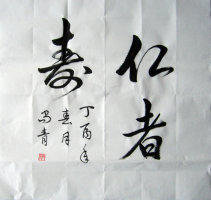 仁者
寿
丁酉年
春月
冯青